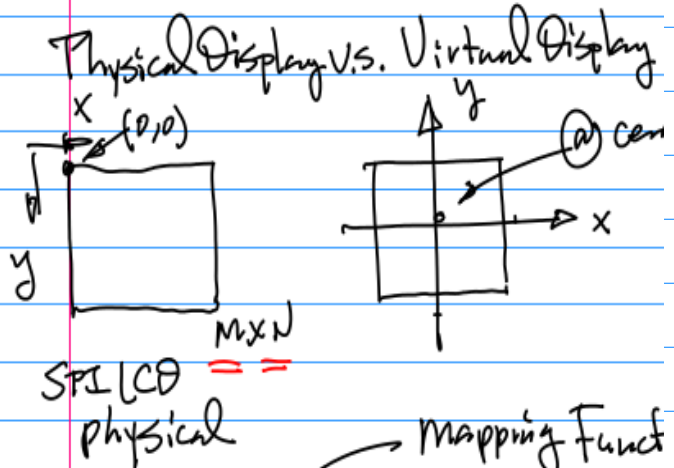 Physical Display v.s. Virtual Display
y
x
(0,0)
@ cen
x
y
MXN
SPI LCD
physical
Mapping Funct